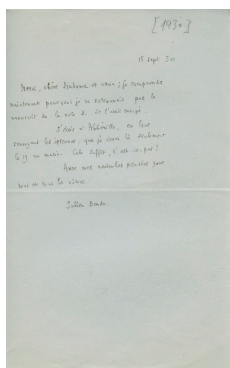 [1930]
15 sept 30
Merci, chère Madame et amie; je comprends
maintenant pourquoi je ne retrouvais pas le
manuscrit de la note 2. Je l'avais
J'écris à
renvoyant les épreuves, que je serai là seulement
le 19 au matin. Cela suffit, n'est-ce pas?
Avec mes meilleures pensées pour
vous et tous les vôtres.
Julien Benda.